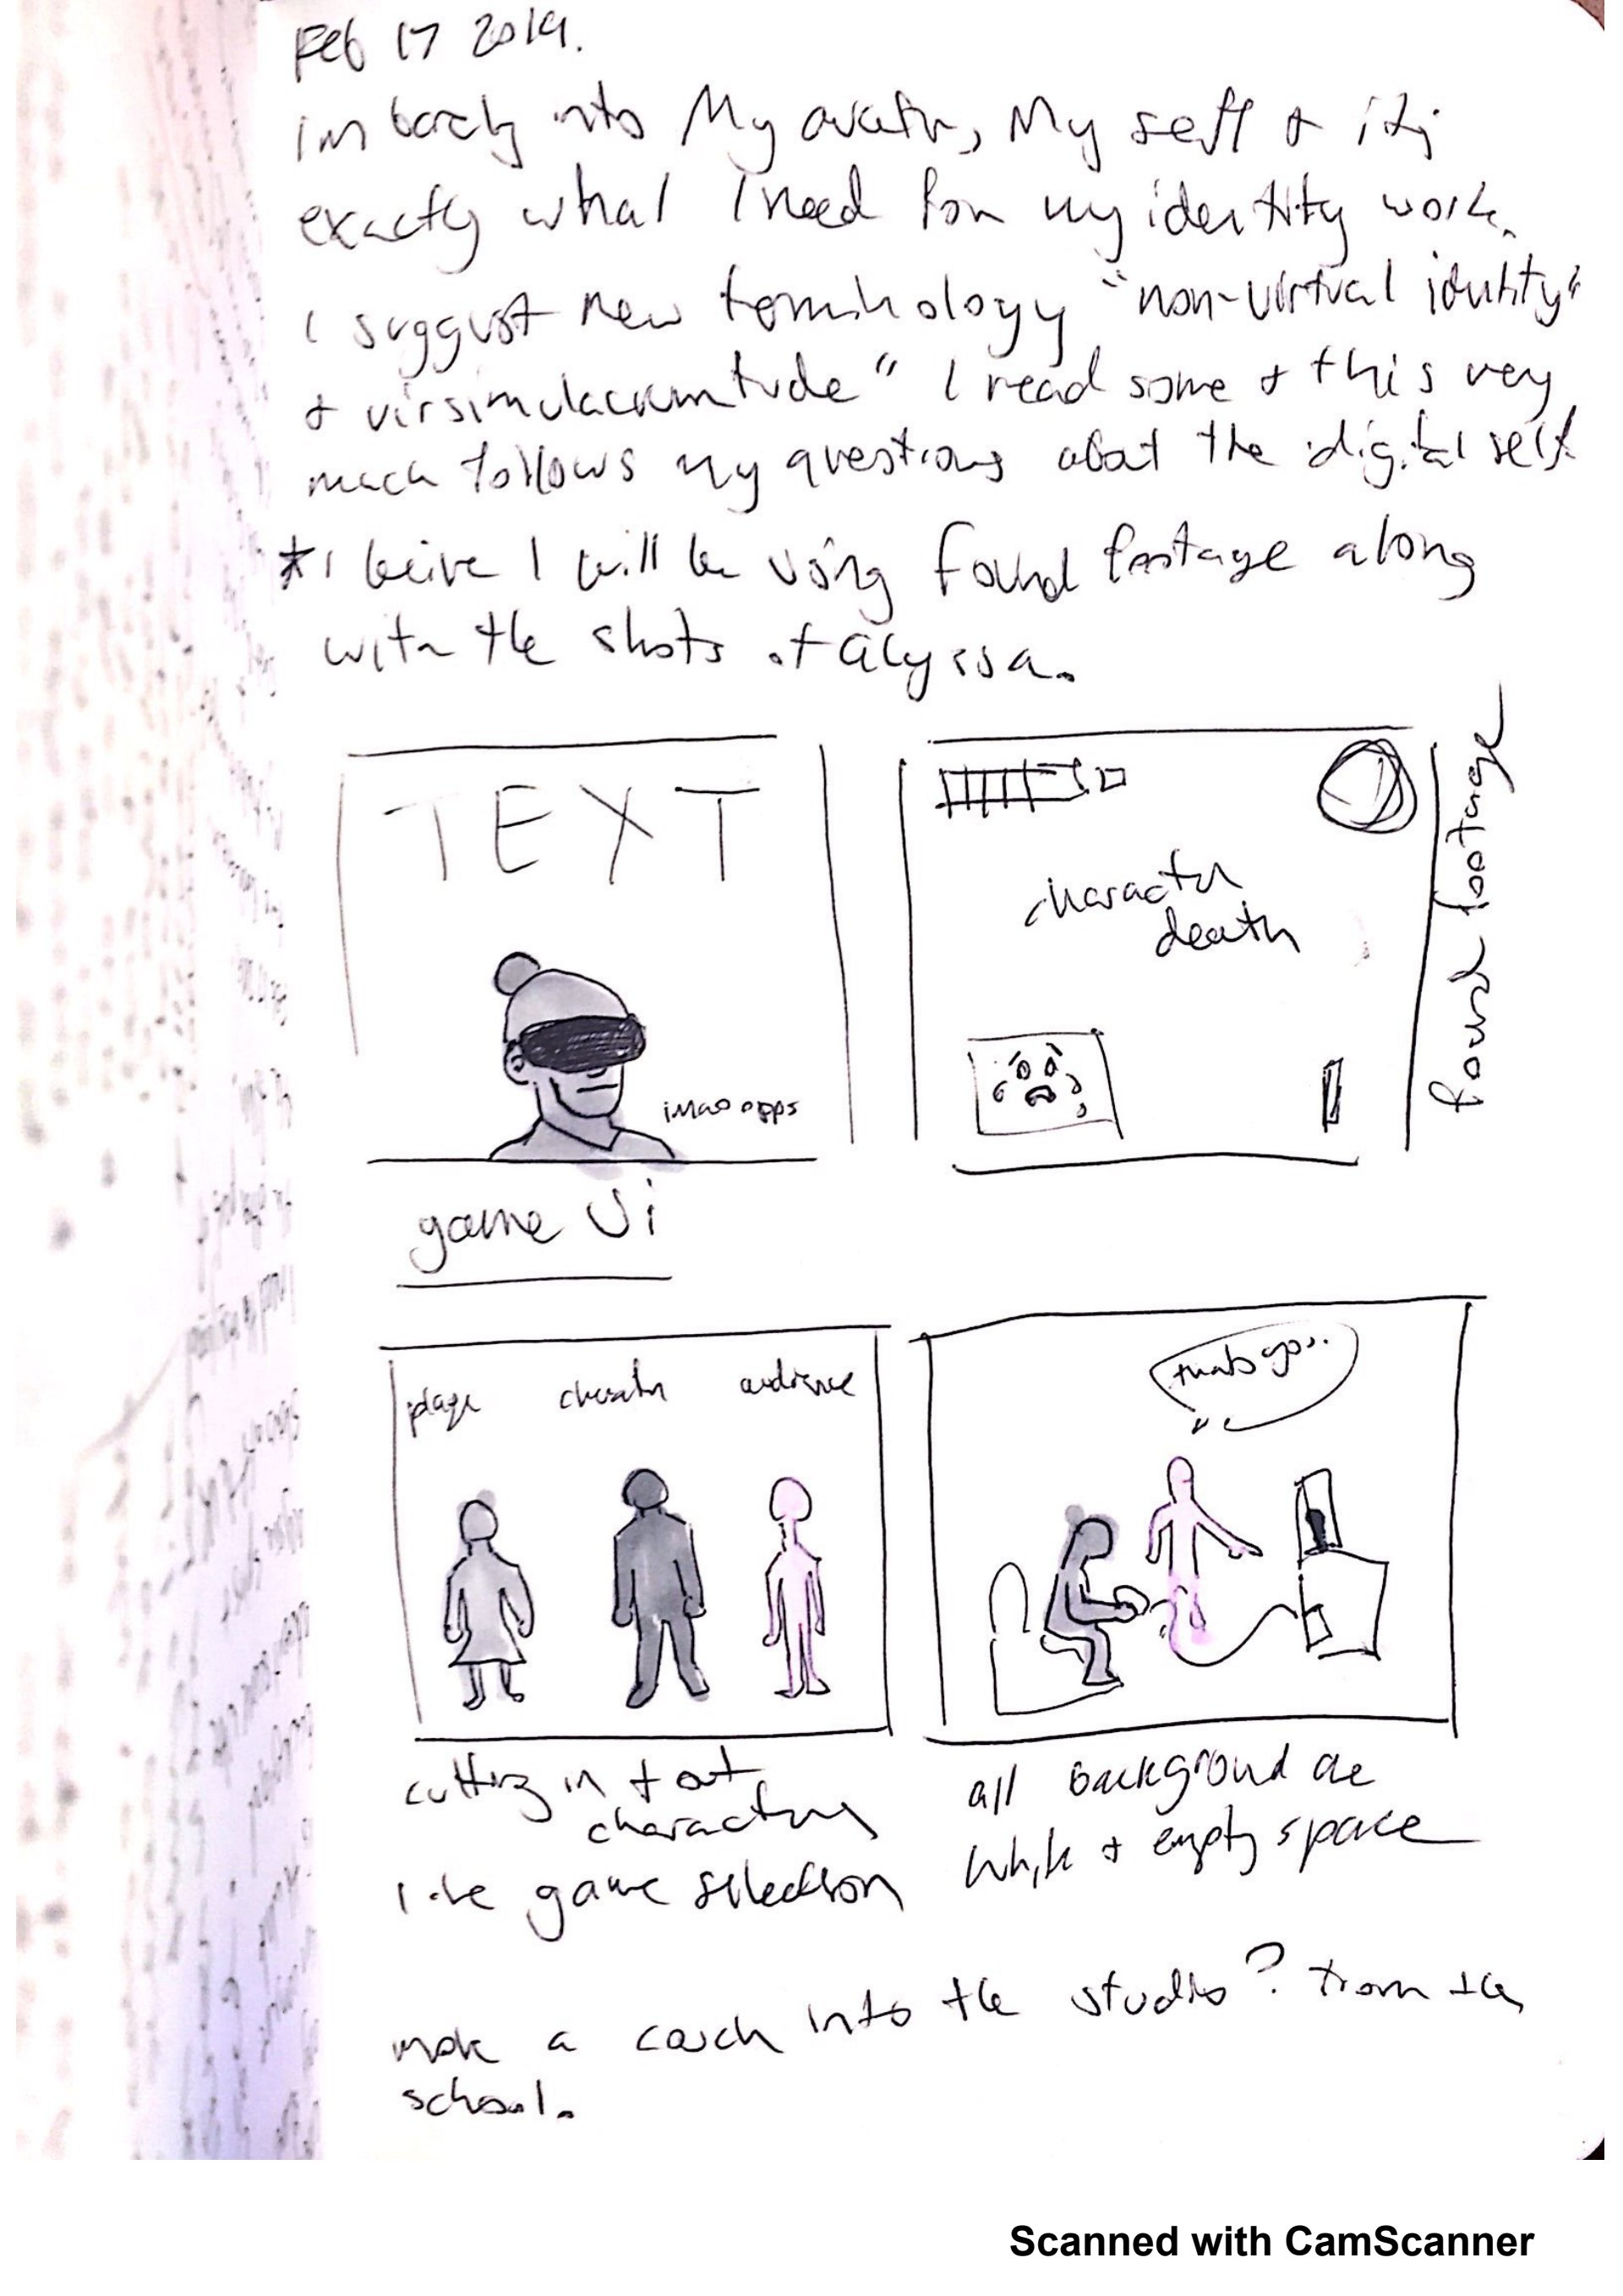 Feb 17 2019.
im barely into My avatar, My self & it's
exactly what I need for my identity work.
I suggest new terminology "non-virtual identity"
& virsimulacrumtude" I read some & this very
much follows my questions about the digital self
*I beive I will be using found footage along
with the shots of alyssa.
TEXT
character
death
found footage
game Ui
audience
cutting in & out
characters
like game selection
all background are
white & empty space
make a couch into the studio? from the
school.
Scanned with CamScanner